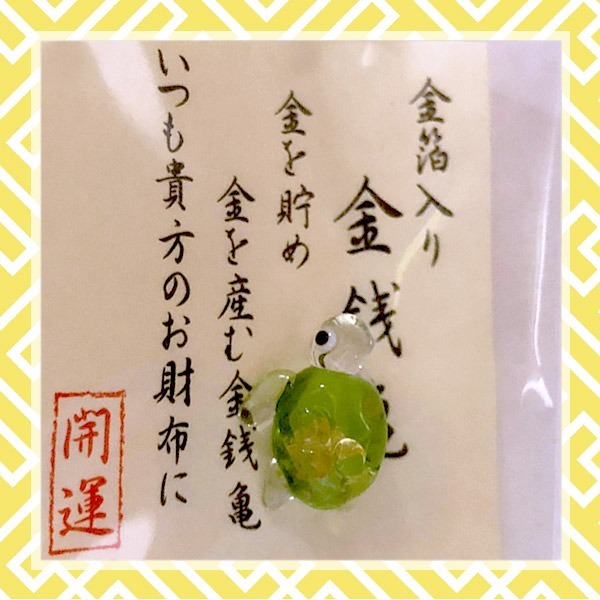 金箔入り
金銭亀
金を貯め
金を産む金銭亀
いつも貴方のお財布に
開運